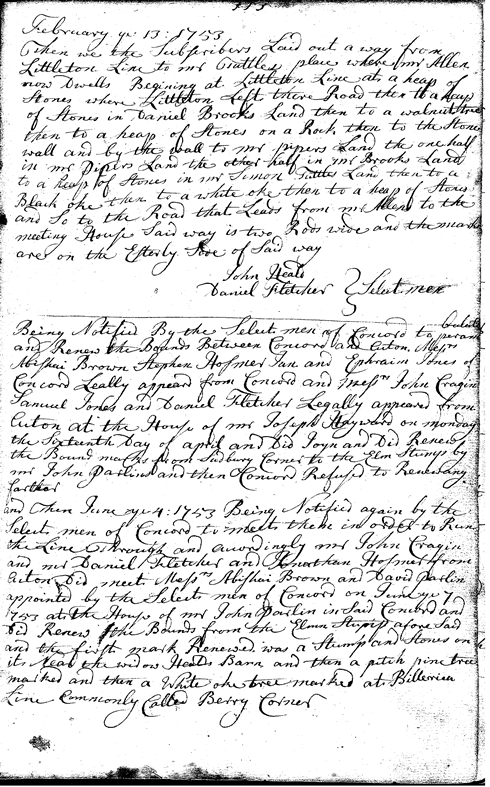 113
February ye 13: 1753
Then we the Subscribers Laid out a way from
Littleton Line to mr Tuttles place where mr Allen
now Dwells Begining at Littleton Line at a heap of
Stones where Littleton Left there Road then to a heap
of Stones in Daniel Brooks Land then to a walnut tree
then to a heap of Stones on a Rock then to the Stone
wall and by the wall to mr pipers Land the one half
in mr Pipers Land the other half in mr Brooks Land
to a heap of Stones in mr Simon Tuttles Land then to a
Black oke then to a white oke then to a heap of Stones
and So to the Road that Leads from mr Allens to the
meeting House Said way is two Rods wide and the marks
are on the Esterly Side of Said way
John Heald
Daniel Fletcher } Select men
Being Notified By the Select men of Concord to
and Renew the Bounds Between Concord and Acton, Messrs
Abishai Brown Stephen Hosmer Jun and Ephraim Jones of
Concord Leally appeard from Concord and messrs John Cragin
Samuel Jones and Daniel Fletcher Legally appeared from
Acton at the House of mr Joseph Hayward on monday
the Sixteenth Day of april and Did Joyn and Did Renew
the Bound marks from Sudbury Corner to the Elm Stump by
mr John Parlins and then Concord Refused to Renew any
farther
and Then June ye 4: 1753 Being Notified again by the
Select men of Concord to meet them in order to Run
the Line through and acordingly mr John Cragin
and mr Daniel Fletcher and Jonathan Hosmer from
Acton Did meet Messrs Abishai Brown and David Parlin
appointed by the Select men of Concord on June ye 7
1753 at the House of mr John Parlin in Said Concord and
Did Renew the Bounds from the Elmn Stump afore Said
and the first mark Renewed was a Stump and Stones on
it Near the widow Healds Barn and then a pitch pine tree
marked and then a White oke tree marked at Billerica
Line Commonly Called Berry Corner